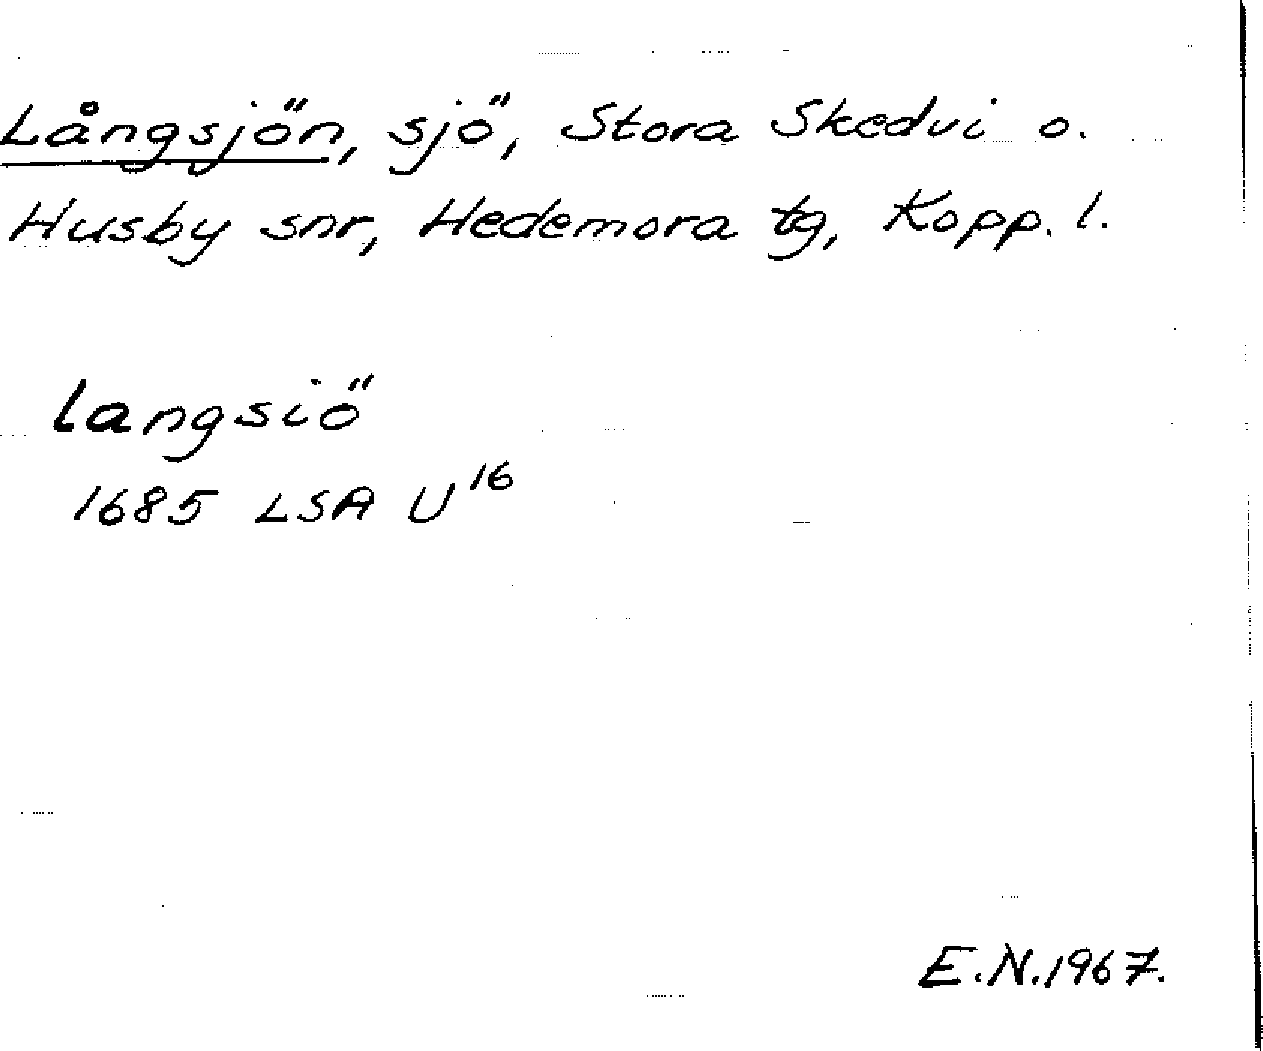 Långsjön, sjö, Stora Skedvi o.
Husby snr, Hedemora tg, Kopp. l.
langsiö
1685 LSA U16
E.N.1967.